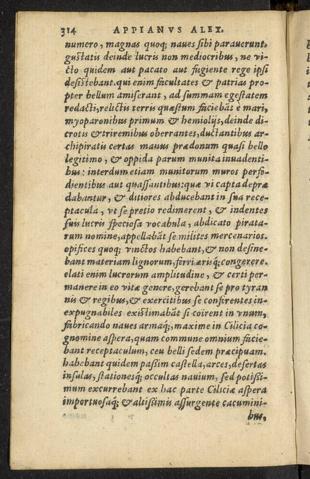 314 APPIANVS ALEX.
numero, magnas quoq; naues sibi parauerunt.
gustatis deinde lucris non mediocribus, ne vi-
cto quidem aut pacato aut fugiente rege ipsi
desistebant. qui enim facultates & patrias pro-
pter bellum amiserant, ad summam egestatem
redacti, relictis terris quæstum faciebāt è mari,
myoparonibus primum & hemiolijs, deinde di-
crotis & triremibus oberrantes, ductantibus ar-
chipiratis certas manus prædonum quasi bello
legitimo, & oppida parum munita inuadenti-
bus: interdum etiam munitorum muros perfo-
dientibus aut quassantibus: quæ vi capta depræ
dabantur, & ditiores abducebant in sua rece-
ptacula, vt se pretio redimerent, & indentes
suis lucris speciosa vocabula, abdicato pirata-
rum nomine, appellabāt se milites mercenarios.
opifices quoq; vinctos habebant, & non desine-
bant materiam lignorum, ferri æris q; congerere.
elati enim lucrorum amplitudine, & certi per-
manere in eo vitæ genere, gerebant se pro tyran
nis & regibus, & exercitibus se conferentes in-
expugnabiles existimabāt si coirent in vnum,
fabricando naues armaq;, maxime in Cilicia co-
gnomine aspera, quam commune omnium facie-
bant receptaculum, ceu belli sedem præcipuam.
habebant quidem passim castella, arces, desertas
insulas, stationesq; occultas nauium, sed potissi-
mum excurrebant ex hac parte Ciliciæ aspera
importuosaq; & altissimis assurgente cacumini-
bus,